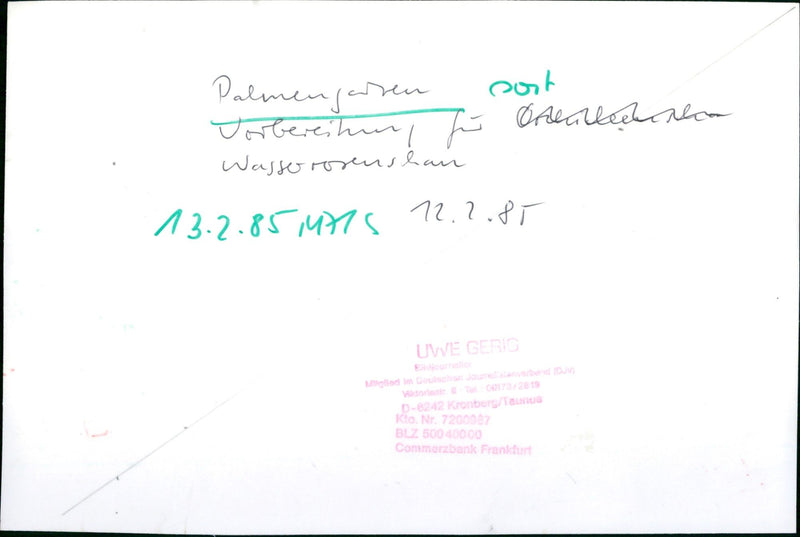 Palmengarten port
Vorbereitung für
Wasserrosenschau
13.2.85 MAIS 12.2.85
UWE GERIG
Bildjournalist
Mitglied im Deutschen Journalistenverband (DJV)
Viktoriastr. 6 Tel. 06173/2819
D-6242 Kronberg/Taunus
Kto. Nr. 7200967
BLZ 50040000
Commerzbank Frankfurt